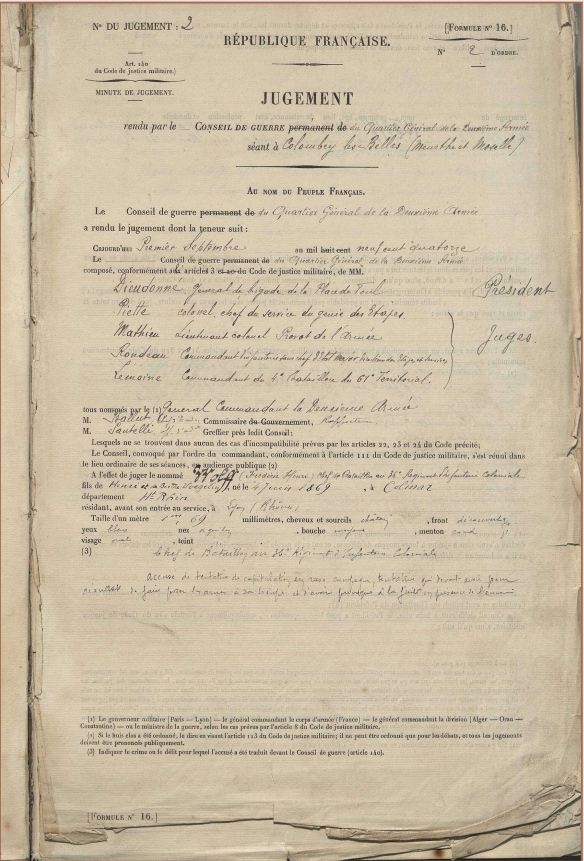 N° DU JUGEMENT : 2
[FORMULE N° 16.]
RÉPUBLIQUE FRANÇAISE.
N° 2 D'ORDRE.
Art. 140
du Code de justice militaire.
MINUTE DE JUGEMENT.
JUGEMENT
rendu par le CONSEIL DE GUERRE permanent de du Quartier Général de la Deuxième Armée
séant à Colombey les Belles (Meurthe et Moselle)
AU NOM DU PEUPLE FRANÇAIS.
Le Conseil de guerre permanent de du Quartier Général de la Deuxième Armée
a rendu le jugement dont la teneur suit :
CEJOURD'HUI Premier Septembre an mil huit cent neuf cent quatorze
Le Conseil de guerre permanent de du Quartier Général de la Deuxième Armée
composé, conformément aux articles 3 et 10 du Code de justice militaire, de MM.
Dieudonné, général de brigade de la Place de Toul Président
Piette colonel, chef du service du génie des Etapes
Mathieu Lieutenant colonel Prévot de l'Armée
Juges
Rondeau Commandant d'infanterie sous chef d'Etat Major Direction des Etapes et Services
Lemoine Commandant du 4e Bataillon du 61e Territorial.
tous nommés par le (1) Général Commandant la Deuxième Armée
M. , Commissaire du Gouvernement, Rapporteur
M. Santelli , Greffier près ledit Conseil ;
Lesquels ne se trouvent dans aucun des cas d'incompatibilité prévus par les articles 22, 23 et 24 du Code précité ;
Le Conseil, convoqué par l'ordre du commandant, conformément à l'article 111 du Code de justice militaire, s'est réuni dans
le lieu ordinaire de ses séances, en audience publique (2)
A l'effet de juger le nommé Wolff (Frédéric Henri) chef de Bataillon au 36e Régiment d'Infanterie Coloniale
fils de Henri et de , né le 4 Juin 1869 , à Colmar
département Ht Rhin
résidant, avant son entrée au service, à Lyon (Rhône)
Taille d'un mètre 69 millimètres, cheveux et sourcils châtain , front découvert
yeux bleus , nez , bouche moyenne , menton rond
visage oval , teint
(3) Chef de Bataillon au 36e Régiment d'Infanterie Coloniale
accusé de tentative de capitulation en rase campagne, tentative qui devait avoir pour
résultat de faire poser les armes à sa troupe et d'avoir provoqué à la fuite en présence de l'ennemi
(1) Le gouverneur militaire (Paris — Lyon) — le général commandant le corps d'armée (France) — le général commandant la division (Alger — Oran —
Constantine) — ou le ministre de la guerre, selon les cas prévus par l'article 8 du Code de justice militaire.
(2) Si le huis clos a été ordonné, le dire en visant l'article 113 du Code de justice militaire ; il ne peut être ordonné que pour les débats, et tous les jugements
doivent être prononcés publiquement.
(3) Indiquer le crime ou le délit pour lequel l'accusé a été traduit devant le Conseil de guerre (article 140).
[FORMULE N° 16.]